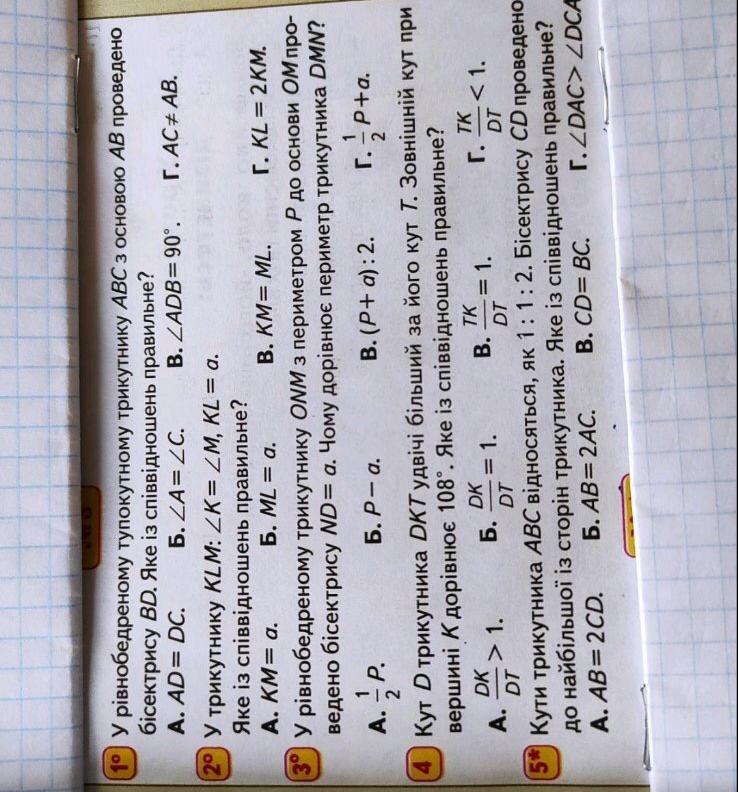 1° У рівнобедреному тупокутному трикутнику ABC з основою AB проведено
бісектрису BD. Яке із співвідношень правильне?
А. AD = DC. Б. ∠A = ∠C. В. ∠ADB = 90°. Г. AC ≠ AB.
2° У трикутнику KLM: ∠K = ∠M, KL = a.
Яке із співвідношень правильне?
А. KM = a. Б. ML = a. В. KM = ML. Г. KL = 2KM.
3° У рівнобедреному трикутнику ONM з периметром P до основи OM про-
ведено бісектрису ND = a. Чому дорівнює периметр трикутника DMN?
А. 1/2 P. Б. P – a. В. (P + a) : 2. Г. 1/2 P + a.
4 Кут D трикутника DKT удвічі більший за його кут T. Зовнішній кут при
вершині K дорівнює 108°. Яке із співвідношень правильне?
А. DK/DT > 1. Б. DK/DT = 1. В. TK/DT = 1. Г. TK/DT < 1.
5* Кути трикутника ABC відносяться, як 1 : 1 : 2. Бісектрису CD проведено
до найбільшої із сторін трикутника. Яке із співвідношень правильне?
А. AB = 2CD. Б. AB = 2AC. В. CD = BC. Г. ∠DAC > ∠DCA